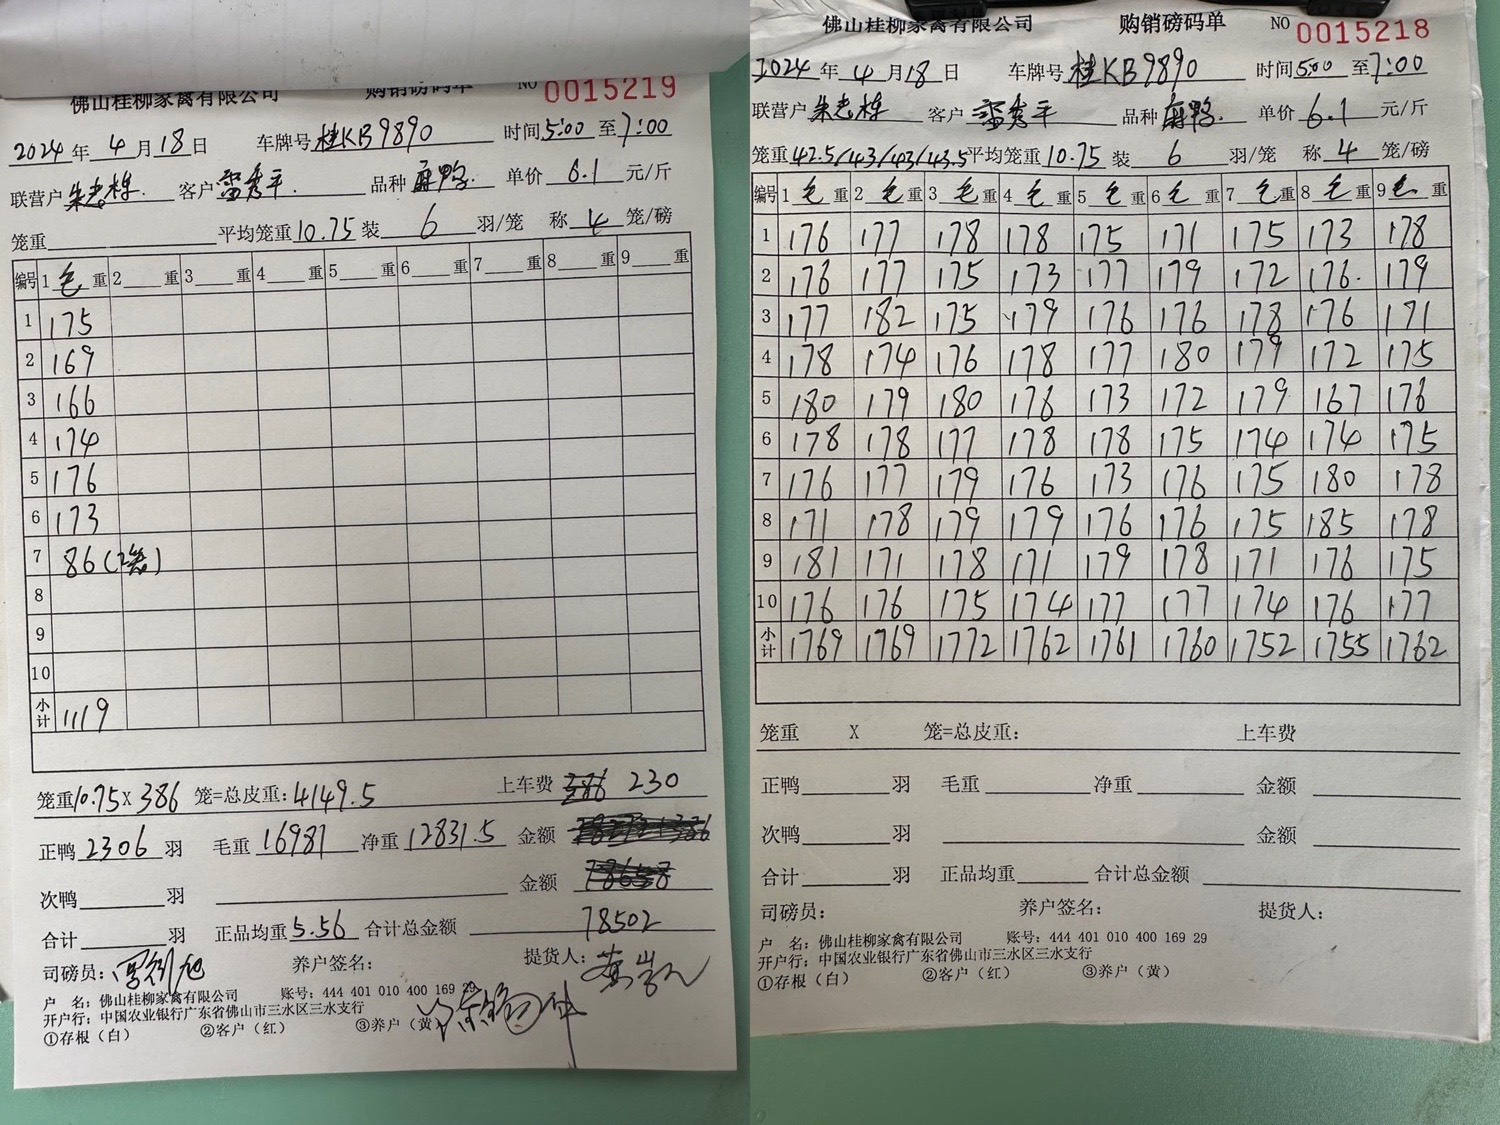 佛山桂柳家禽有限公司 购销磅码单 NO 0015219
2024年4月18日 车牌号桂KB9890 时间5:00至7:00
联营户朱志栋. 客户雷秀平. 品种麻鸭. 单价6.1元/斤
笼重 平均笼重10.75装6羽/笼 称4笼/磅
编号 1毛重 2重 3重 4重 5重 6重 7重 8重 9重
1 175
2 169
3 166
4 174
5 176
6 173
7 86(2笼)
8
9
10
小计 1119
笼重10.75X386笼=总皮重:4149.5 上车费 230
正鸭2306羽 毛重16981 净重12831.5 金额
次鸭 羽 金额
合计 羽 正品均重5.56 合计总金额 78502
司磅员: 养户签名: 提货人:
户 名:佛山桂柳家禽有限公司 账号:444 401 010 400 169 29
开户行:中国农业银行广东省佛山市三水区三水支行
①存根(白) ②客户(红) ③养户(黄)
佛山桂柳家禽有限公司 购销磅码单 NO 0015218
2024年4月18日 车牌号桂KB9890 时间5:00至7:00
联营户朱志栋 客户雷秀平 品种麻鸭. 单价6.1元/斤
笼重42.5/43/43/43.5平均笼重10.75装6羽/笼 称4笼/磅
编号 1毛重 2毛重 3毛重 4毛重 5毛重 6毛重 7毛重 8毛重 9毛重
1 176 177 178 178 175 171 175 173 178
2 176 177 175 173 177 179 172 176. 179
3 177 182 175 179 176 176 178 176 171
4 178 174 176 178 177 180 179 172 175
5 180 179 180 176 173 172 179 167 176
6 178 178 177 178 178 175 174 174 175
7 176 177 179 176 173 176 175 180 178
8 171 178 179 179 176 176 175 185 178
9 181 171 178 171 179 178 171 176 175
10 176 176 175 174 177 177 174 176 177
小计 1769 1769 1772 1762 1761 1760 1752 1755 1762
笼重 X 笼=总皮重: 上车费
正鸭 羽 毛重 净重 金额
次鸭 羽 金额
合计 羽 正品均重 合计总金额
司磅员: 养户签名: 提货人:
户 名:佛山桂柳家禽有限公司 账号:444 401 010 400 169 29
开户行:中国农业银行广东省佛山市三水区三水支行
①存根(白) ②客户(红) ③养户(黄)